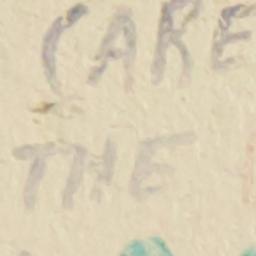 CARE
THE